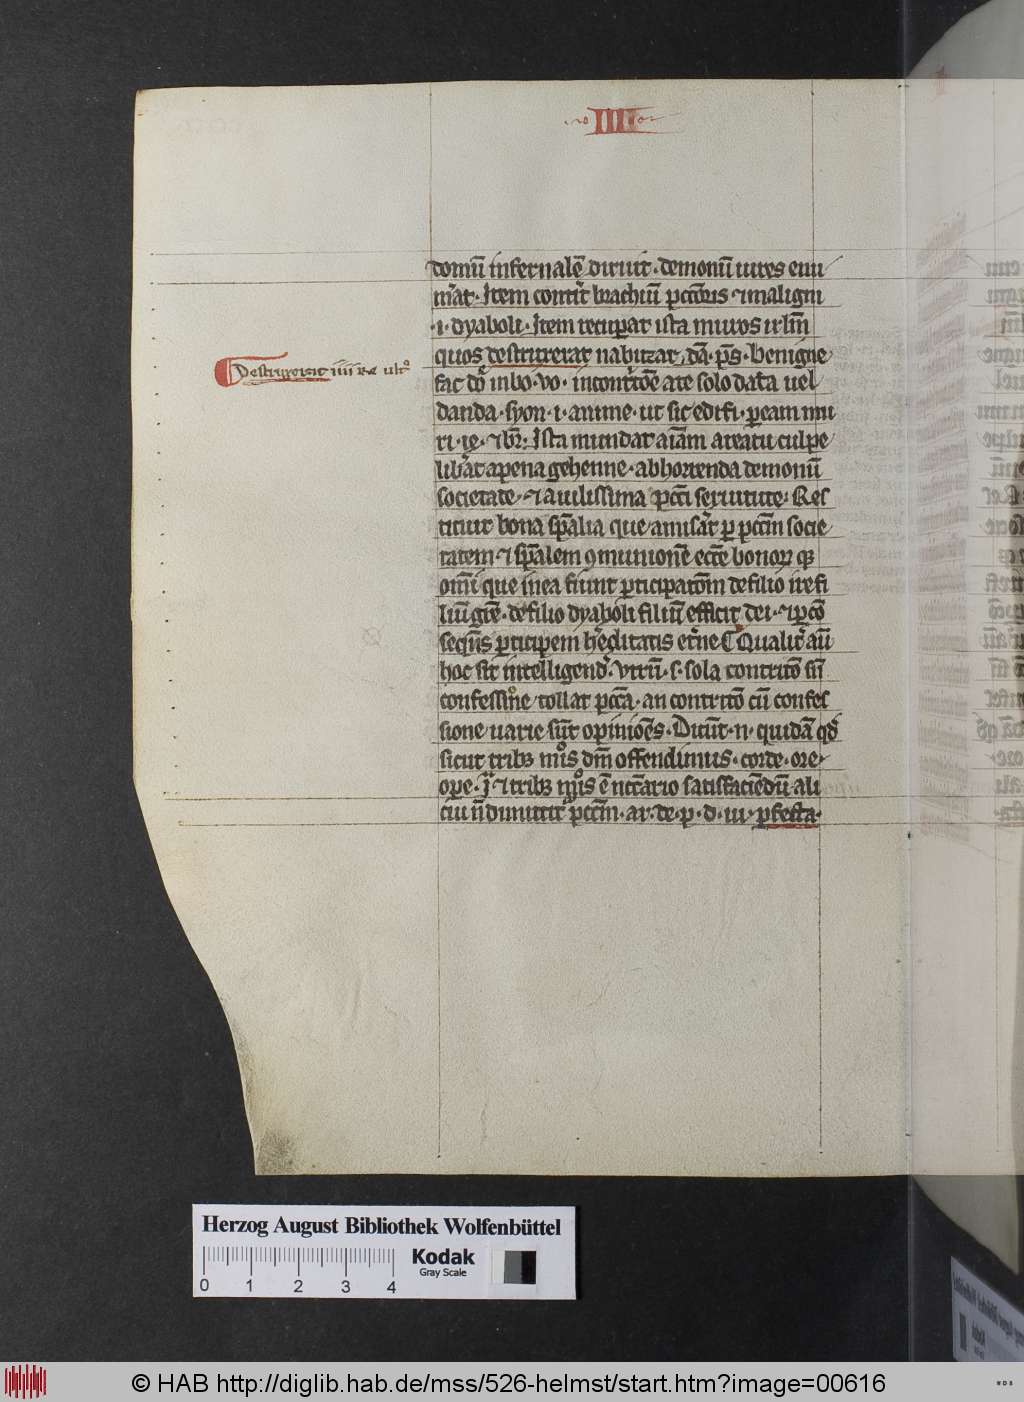 IIII
domū infernalē diruit · demonū uires eui
n̄at · Item contīt brachiū pcc̄oris ⁊ maligni
·i· dyaboli · Item recuꝑat ista muros irlm̄
quos destruxerat nabuzar · dā · ps̄ · Benigne
fac dō in bo · uo · in contc̄oē a te solo data uel
danda · syon · i · anime · ut sic edifi · ꝑ eam mu
ri · ie · ⁊ br̄ · Ista mundat aīam a reatu culpe
lib̄at a pena gehenne · ab horrenda demonū
societate · ⁊ a uilissima pcc̄i seruitute · Res
tituit bona spālia que amis̄at ꝑ pcc̄m socie
tatem ⁊ spālem ꝯmunionē ecc̄e bonoꝝ
om̄i que in ea fiunt ꝑticipatōm de filio ire fi
liū grē · de filio dyaboli filiū efficit dei · ⁊ ꝑ cō
seqn̄s ꝑticipem h̄editatis et̄ne Qualit̄ aū
hoc sit intelligend̄ · Vtrū · s · sola contritō sn̄
confessione tollat pcc̄a · an contritō cū confes
sione uarie sūt opinioēs · Dicūt · n · quidā qd̄
sicut tribꝫ mōis dm̄ offendimus · corde · ore
oꝑe · Ita ⁊ tribꝫ mōis ē ncc̄ario satisfaciēdū ali
cui n̄ dimittit pcc̄m · ar · de · p · d · iii · ꝑfecta ·
Destruxerat iiii re ult°
Herzog August Bibliothek Wolfenbüttel
Kodak
Gray Scale
0 1 2 3 4
© HAB http://diglib.hab.de/mss/526-helmst/start.htm?image=00616